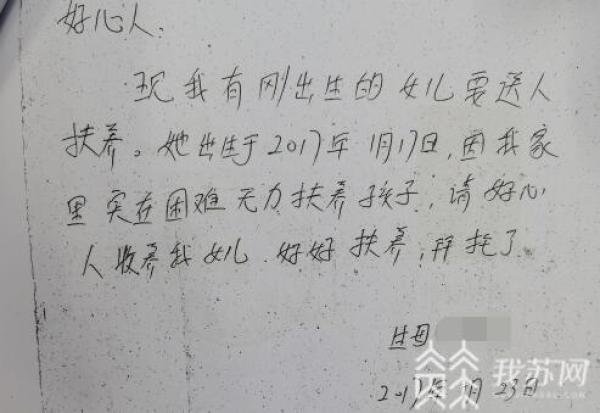 好心人.
现我有刚出生的女儿要送人
扶养。她出生于2017年1月17日,因我家
里实在困难无力扶养孩子,请好心
人收养我女儿.好好扶养,拜托了
生母
我苏网
2017年1月23日